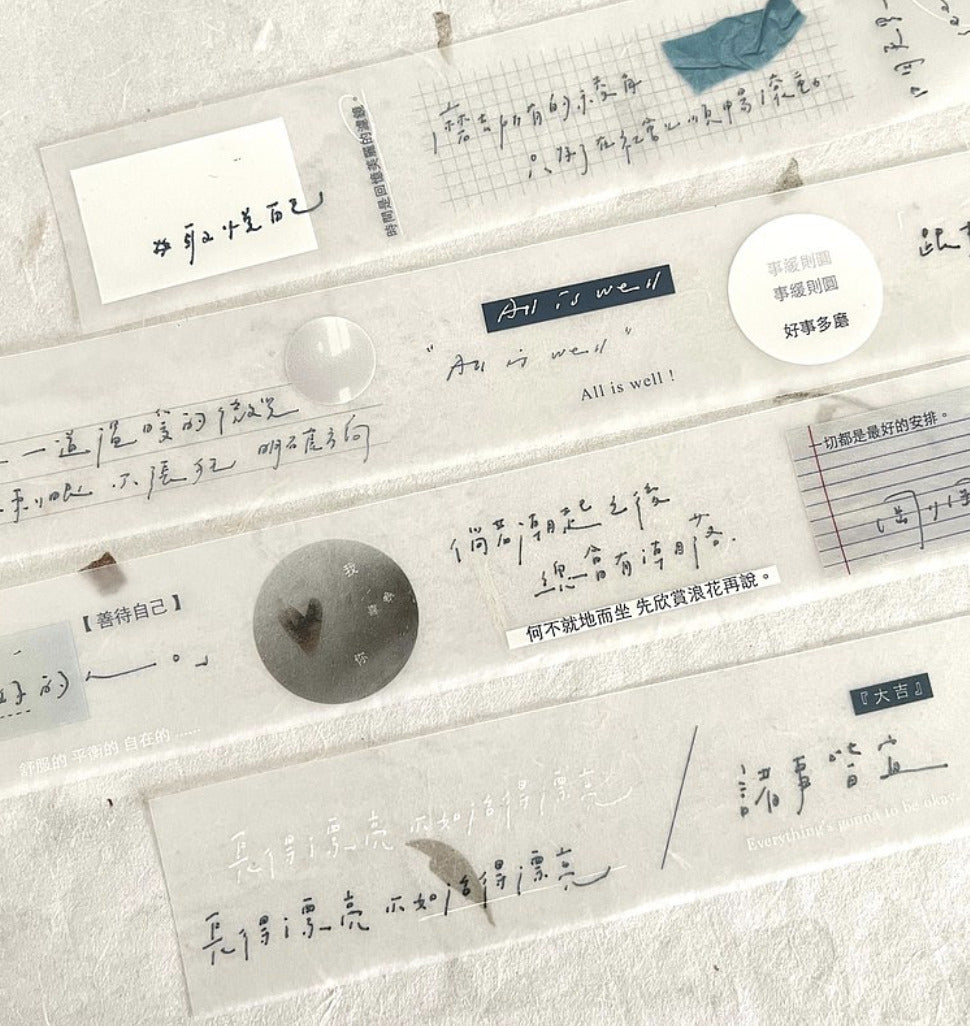 #取悅自己
時間是回憶美麗的濾鏡。
磨去所有的未稜角
只好在紅塵心順暢滾動
All is well
"All is well"
All is well !
事緩則圓
事緩則圓
好事多磨
一道溫暖的微光
不張狂 明確方向
倘若潮起之後
總會有潮落.
何不就地而坐 先欣賞浪花再說。
一切都是最好的安排。
【善待自己】
好的
我
喜歡
你
舒服的 平衡的 自在的 ......
『大吉』
諸事皆宜
Everything's gonna to be okay
長得漂亮 不如活得漂亮
長得漂亮 不如活得漂亮